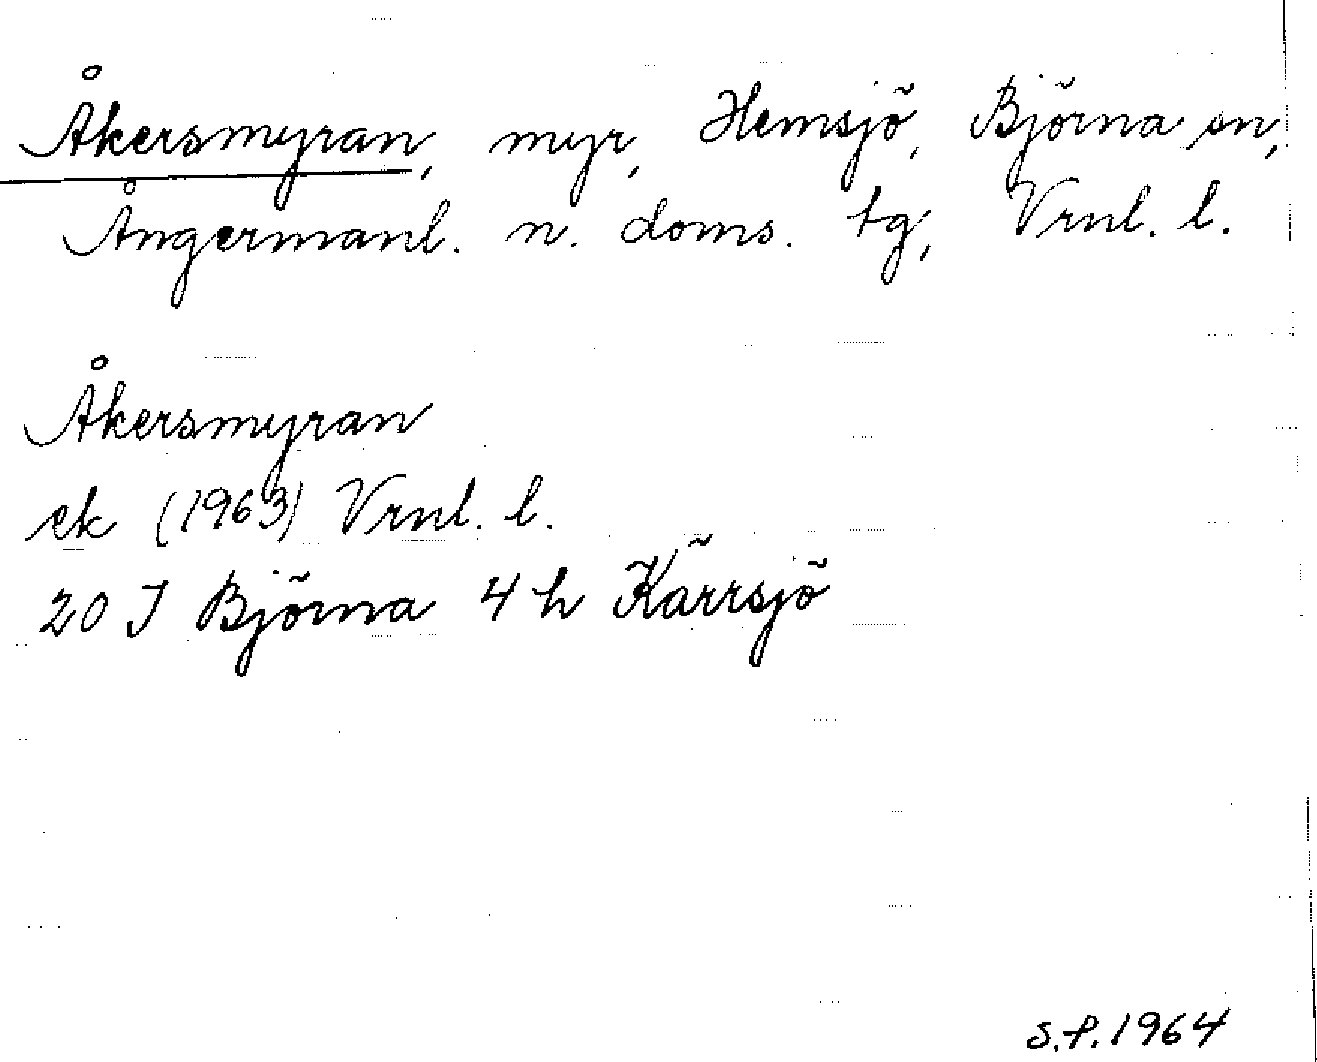 Åkersmyran, myr, Hemsjö, Björna sn,
Ångermanl. n. doms. tg, Vrnl. l.
Åkersmyran
ek (1963) Vrnl. l.
20 J Björna 4 h Kärrsjö
S.P. 1964